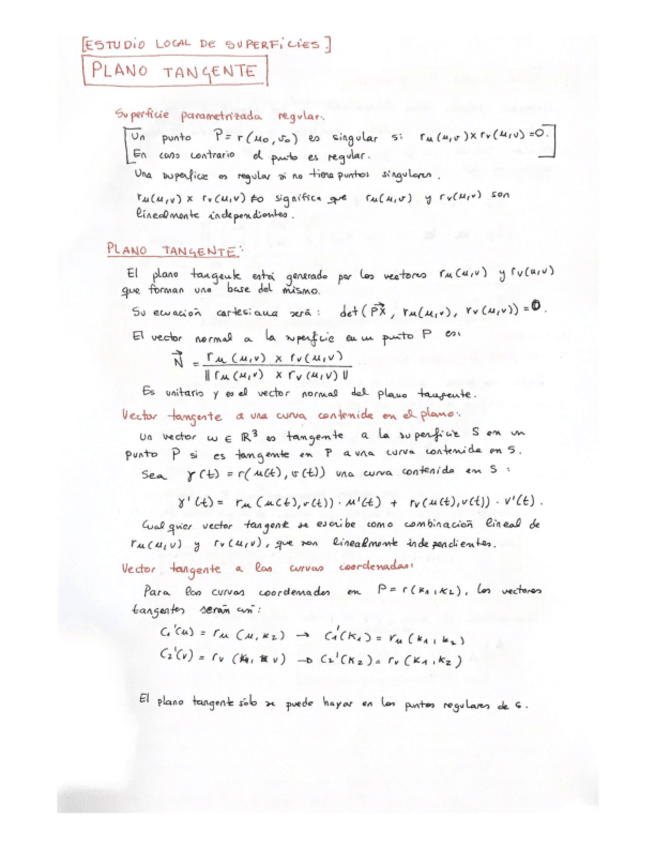 [ESTUDIO LOCAL DE SUPERFICIES]
PLANO TANGENTE
Superficie parametrizada regular:
Un punto P = r(u₀, v₀) es singular si rᵤ(u,v) × rᵥ(u,v) = 0.
En caso contrario el punto es regular.
Una superficie es regular si no tiene puntos singulares.
rᵤ(u,v) × rᵥ(u,v) ≠ 0 significa que rᵤ(u,v) y rᵥ(u,v) son
linealmente independientes.
PLANO TANGENTE:
El plano tangente está generado por los vectores rᵤ(u,v) y rᵥ(u,v)
que forman una base del mismo.
Su ecuación cartesiana será: det(PX⃗, rᵤ(u,v), rᵥ(u,v)) = 0.
El vector normal a la superficie en un punto P es:
N⃗ = rᵤ(u,v) × rᵥ(u,v) / ‖rᵤ(u,v) × rᵥ(u,v)‖
Es unitario y es el vector normal del plano tangente.
Vector tangente a una curva contenida en el plano:
Un vector ω ∈ ℝ³ es tangente a la superficie S en un
punto P si es tangente en P a una curva contenida en S.
Sea γ(t) = r(u(t), v(t)) una curva contenida en S:
γ'(t) = rᵤ(u(t), v(t)) · u'(t) + rᵥ(u(t), v(t)) · v'(t).
Cualquier vector tangente se escribe como combinación lineal de
rᵤ(u,v) y rᵥ(u,v), que son linealmente independientes.
Vector tangente a las curvas coordenadas:
Para las curvas coordenadas en P = r(k₁, k₂), los vectores
tangentes serán así:
C₁'(u) = rᵤ(u, k₂) → C₁'(k₁) = rᵤ(k₁, k₂)
C₂'(v) = rᵥ(k₁, v) → C₂'(k₂) = rᵥ(k₁, k₂)
El plano tangente sólo se puede hayar en los puntos regulares de S.